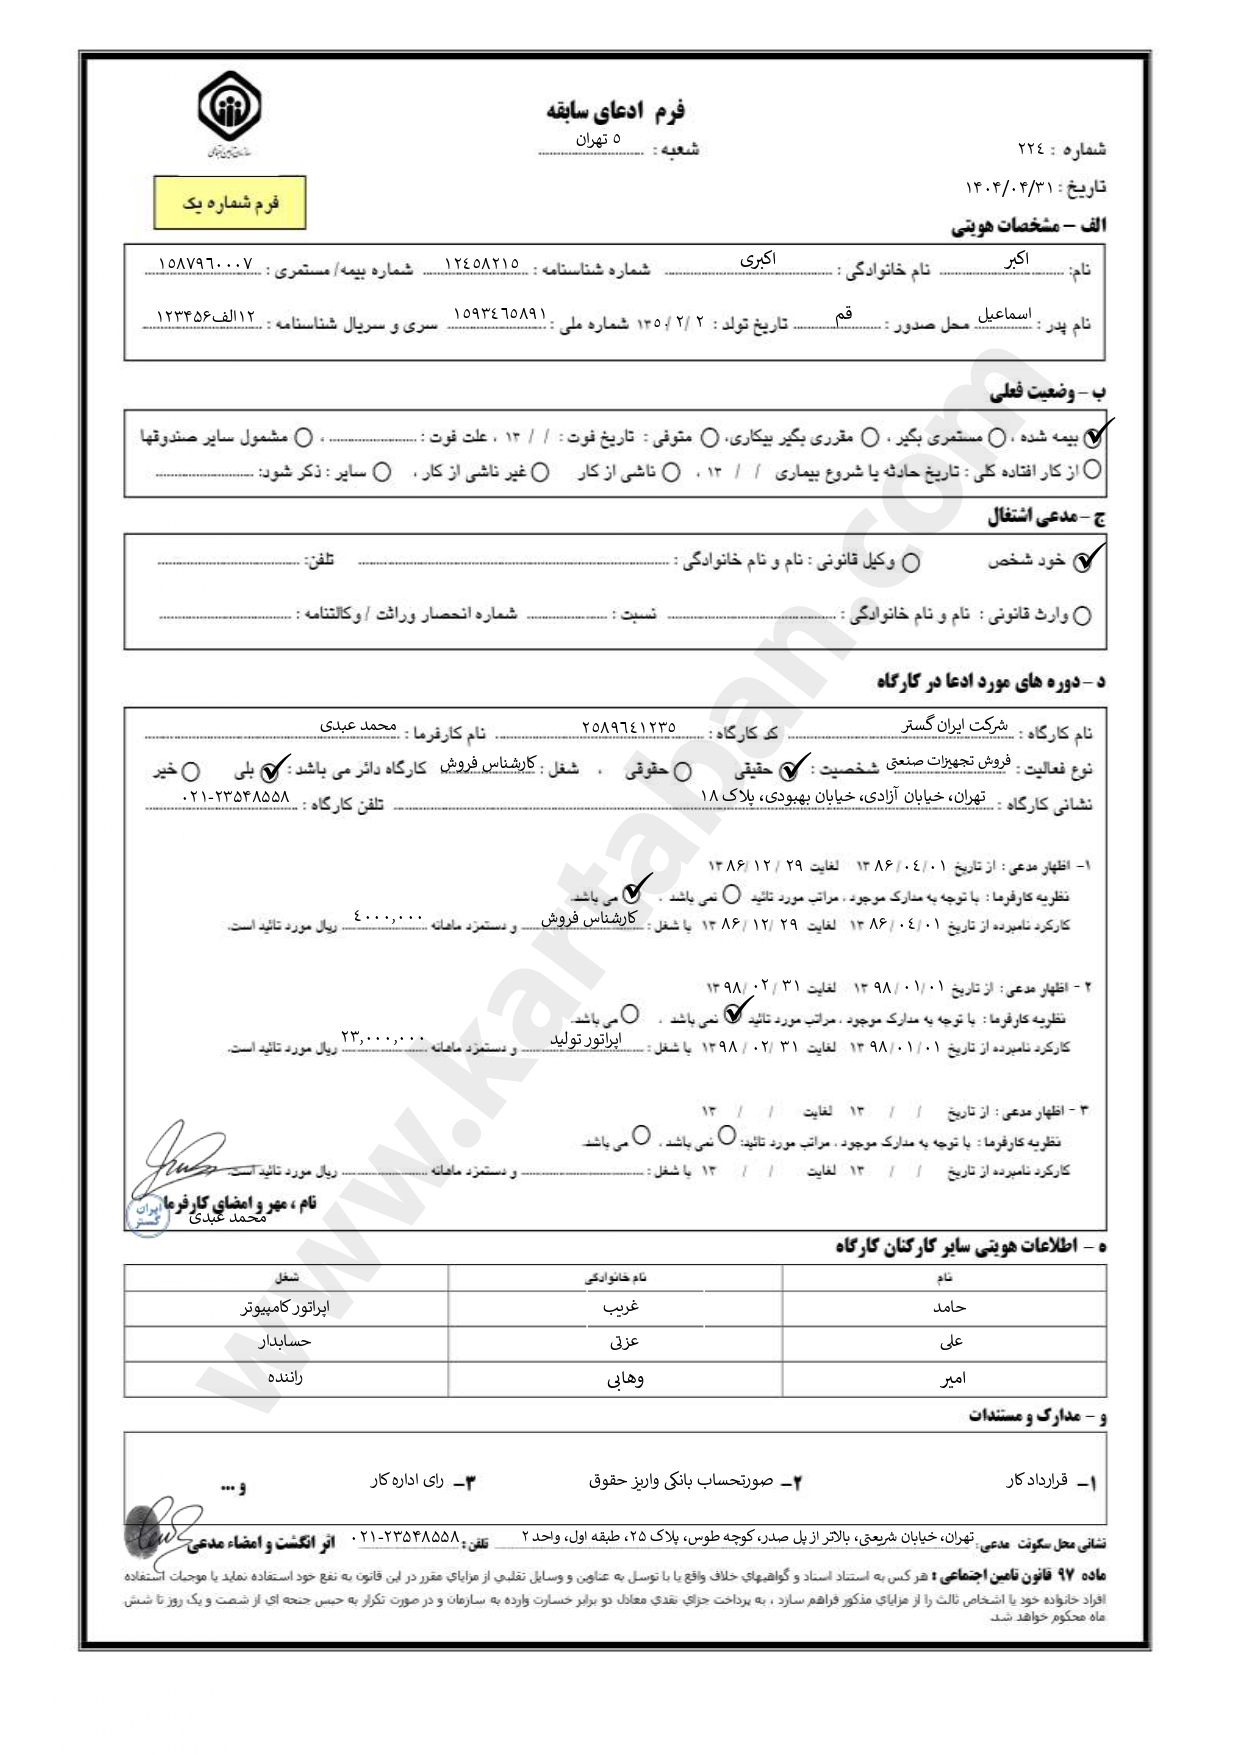 فرم ادعای سابقه
شعبه : ٥ تهران
شماره : ٢٢٤
سازمان تأمین اجتماعی
تاریخ : ۱۴۰۴/۰۴/۳۱
فرم شماره یک
الف – مشخصات هویتی
نام: اکبر نام خانوادگی : اکبری شماره شناسنامه : ١٢٤٥٨٢١٥ شماره بیمه/ مستمری : ١٥٨٧٩٦٠٠٠٧
نام پدر : اسماعیل محل صدور : قم تاریخ تولد : ٢ /٢ /١٣٥٠ شماره ملی : ١٥٩٣٤٦٥٨٩١ سری و سریال شناسنامه : ١٢الف١٢٣۴۵۶
ب – وضعیت فعلی
بیمه شده ، مستمری بگیر ، مقرری بگیر بیکاری، متوفی : تاریخ فوت : / / ١٣ ، علت فوت : ............ ، مشمول سایر صندوقها
از کار افتاده کلی : تاریخ حادثه یا شروع بیماری / / ١٣ ، ناشی از کار غیر ناشی از کار ، سایر : ذکر شود: ............
ج – مدعی اشتغال
خود شخص وکیل قانونی : نام و نام خانوادگی : ............ تلفن: ............
وارث قانونی : نام و نام خانوادگی : ............ نسبت : ............ شماره انحصار وراثت / وکالتنامه : ............
د – دوره های مورد ادعا در کارگاه
نام کارگاه : شرکت ایران گستر کد کارگاه : ٢٥٨٩٦٤١٢٣٥ نام کارفرما : محمد عبدی
نوع فعالیت : فروش تجهیزات صنعتی شخصیت : حقیقی حقوقی ، شغل : کارشناس فروش کارگاه دائر می باشد : بلی خیر
نشانی کارگاه : تهران، خیابان آزادی، خیابان بهبودی، پلاک ۱۸ تلفن کارگاه : ۰۲۱-۲۳۵۴۸۵۵۸
۱- اظهار مدعی : از تاریخ ٠١ /٠٤ /٨۶ ١٣ لغایت ٢٩ / ١٢ /٨۶ ١٣
نظریه کارفرما : با توجه به مدارک موجود ، مراتب مورد تائید نمی باشد ، می باشد.
کارکرد نامبرده از تاریخ ٠١ /٠٤ /٨۶ ١٣ لغایت ٢٩ /١٢ /٨۶ ١٣ با شغل : کارشناس فروش و دستمزد ماهانه ٤٠٠٠,٠٠٠ ریال مورد تائید است.
۲ - اظهار مدعی : از تاریخ ٠١ /٠١ /٩٨ ١٣ لغایت ٣١ /٠٢ /٩٨ ١٣
نظریه کارفرما : با توجه به مدارک موجود ، مراتب مورد تائید نمی باشد ، می باشد.
کارکرد نامبرده از تاریخ ٠١ /٠١ /٩٨ ١٣ لغایت ٣١ /٠٢ /٩٨ ١٣ با شغل : اپراتور تولید و دستمزد ماهانه ٢٣,٠٠٠,٠٠٠ ریال مورد تائید است.
۳ - اظهار مدعی : از تاریخ / / ١٣ لغایت / / ١٣
نظریه کارفرما : با توجه به مدارک موجود ، مراتب مورد تائید: نمی باشد ، می باشد.
کارکرد نامبرده از تاریخ / / ١٣ لغایت / / ١٣ با شغل : ............ و دستمزد ماهانه ............ ریال مورد تائید است.
نام ، مهر و امضای کارفرما
محمد عبدی
ایران گستر
ه – اطلاعات هویتی سایر کارکنان کارگاه
نام نام خانوادگی شغل
حامد غریب اپراتور کامپیوتر
علی عزتی حسابدار
امیر وهابی راننده
و – مدارک و مستندات
۱– قرارداد کار ۲– صورتحساب بانکی واریز حقوق ۳– رای اداره کار و ...
نشانی محل سکونت مدعی: تهران، خیابان شریعتی، بالاتر از پل صدر، کوچه طوس، پلاک ۲۵، طبقه اول، واحد ۲ تلفن : ۰۲۱-۲۳۵۴۸۵۵۸ اثر انگشت و امضاء مدعی
ماده ۹۷ قانون تامین اجتماعی : هر کس به استناد اسناد و گواهیهای خلاف واقع یا با توسل به عناوین و وسایل تقلبی از مزایای مقرر در این قانون به نفع خود استفاده نماید یا موجبات استفاده
افراد خانواده خود یا اشخاص ثالث را از مزایای مذکور فراهم سازد ، به پرداخت جزای نقدی معادل دو برابر خسارت وارده به سازمان و در صورت تکرار به حبس جنحه ای از شصت و یک روز تا شش
ماه محکوم خواهد شد.
www.kartaban.com